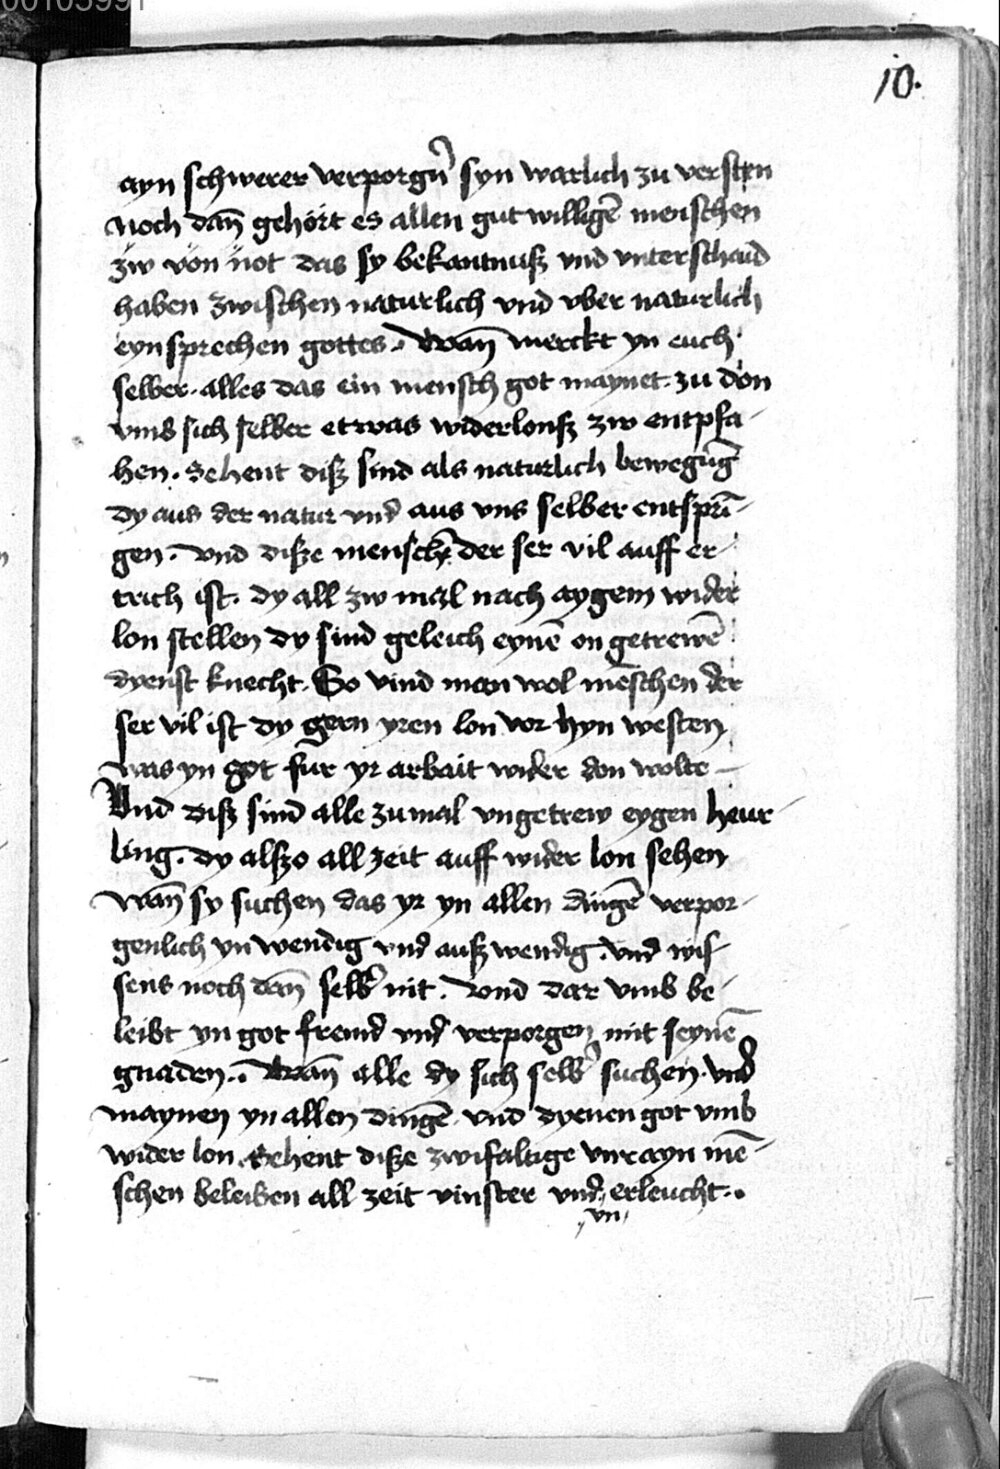 00103991
10.
ayn schwerer verporgn̄ syn warlich zu versten
Noch dan̄ gehört es allen gut willigē menschen
zw von not das sy bekantnusz vnd vnterschaid
haben zwischen naturlich vnd vber naturlich
eynsprechen gottes. Wan̄ merckt yn euch
selber. alles das ein mensch got maynet. zu don
vmb sich selber etwas widerlonsz zw entpfa-
hen. Sehent disz sind als naturlich bewegūg
dy aus der natur vnd aus vns selber entsprī-
gen. Vnd disze menschē der ser vil auff er-
trich ist. dy all zw mal nach aygem wider
lon stellen dy sind geleich eynē on getrewē
dyenst knecht. So vind man wol mēschen der
ser vil ist dy gern yren lon vor hyn westen
was yn got fur yr arbait wider don wolte
Vnd disz sind alle zumal vngetrew eygen heur-
ling. dy alszo all zeit auff wider lon sehen
Wan̄ sy suchen das yr yn allen dingē verpor-
genlich ynwendig vnd ausz wendig. vnd wis-
sens noch dan̄ selb̄ nit. Vnd dar vmb be-
leibt yn got fremd vnd verporgen mit seynē
gnaden. Wan̄ alle dy sich selb̄ suchen. vnd
maynen yn allen dingē. vnd dyenen got vmb
wider lon. Sehent disze zwifaltige vnrayn mē-
schen beleiben all zeit vinster vnd erleucht.
vn